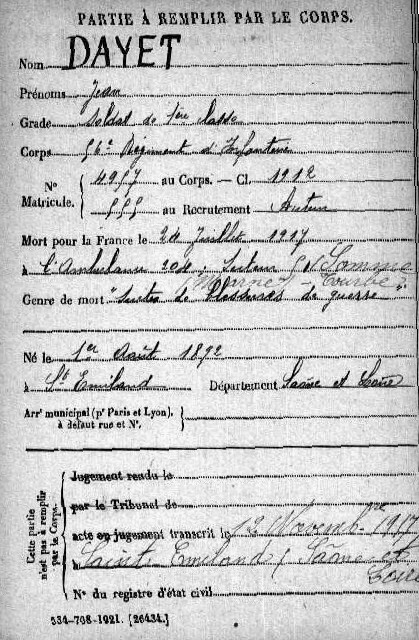 PARTIE À REMPLIR PAR LE CORPS.
Nom DAYET
Prénoms Jean
Grade Soldat de 1ère Classe
Corps 56e Régiment d'Infanterie
N° Matricule. 4957 au Corps. — Cl. 1912
555 au Recrutement Autun
Mort pour la France le 24 Juillet 1917
à l'Ambulance 204, Secteur (Somme
(Marne) - Tourbe
Genre de mort "Suites de Blessures de guerre"
Né le 1er Août 1892
à St Emiland Département Saône et Loire
Arr' municipal (p' Paris et Lyon),
à défaut rue et N°.
Cette partie n'est pas à remplir par le Corps.
Jugement rendu le
par le Tribunal de
acte en jugement transcrit le 12 Novembre 1917
à Saint Emiland (Saône et
Loire
N° du registre d'état civil
534-708-1921. [26434.]